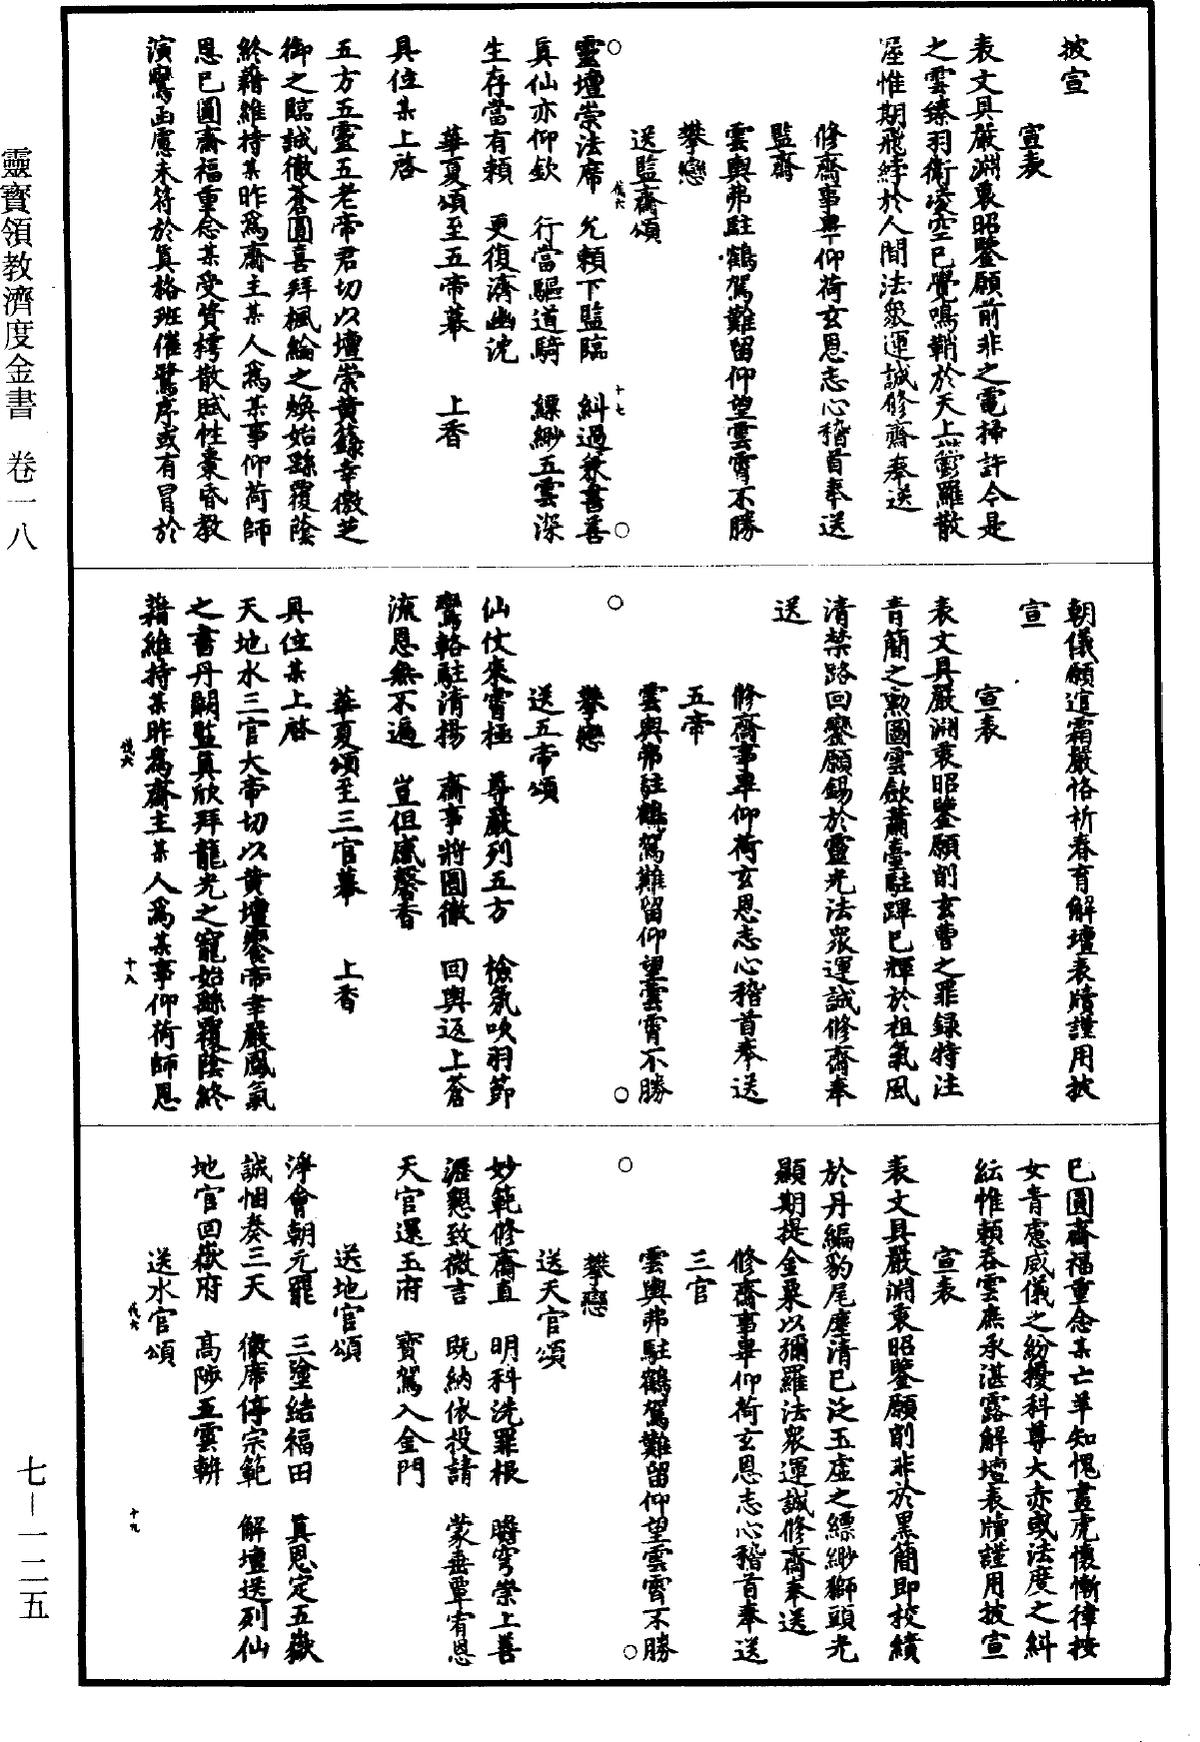 披宣
宣表
表文具嚴淵衷昭鑒願前非之電掃許今是
之雲縁羽衛凌空已覺鳴鞘於天上靈羅散
屋惟期飛絳於人間法衆運誠修齋奉送
修齋事畢仰荷玄恩志心稽首奉送
監齋
雲輿弗駐鶴駕難留仰望雲霄不勝
攀戀
送監齋頌
靈壇崇法席 允賴下監臨 糾過兼書善
真仙亦仰欽 行當驅道騎 縹緲五雲深
生存當有賴 更復濟幽沈
華夏頌至五帝幕 上香
具位某上啓
五方五靈五老帝君切以壇崇黃籙幸徼芝
御之臨誠徹蒼圓喜拜楓綸之煥始繇覆蔭
終藉維持某昨爲齋主某人爲某事仰荷師
恩已圓齋福重念某受質樗散賦性橐昏教
演鸞函慮未符於真格班催鷺序或有冒於
朝儀願逭霜嚴恪祈春育解壇表牘謹用披
宣
宣表
表文具嚴淵衷昭鑒願削玄曹之罪録特注
青簡之勳圖雲斂蕭臺駐蹕已輝於祖氣風
清禁路回鑾願錫於靈光法衆運誠修齋奉
送
修齋事畢仰荷玄恩志心稽首奉送
五帝
雲輿弗駐鶴駕難留仰望雲霄不勝
攀戀
送五帝頌
仙仗來霄極 尊嚴列五方 檢氛吹羽節
鸞輅駐清揚 齋事將圓徹 回輿返上蒼
流恩無不遍 豈但感馨香
華夏頌至三官幕 上香
具位某上啓
天地水三官大帝切以黃壇饗帝幸嚴鳳氣
之書丹闕監真欣拜龍光之寵始繇覆蔭終
藉維持某昨爲齋主某人爲某事仰荷師恩
已圓齋福重念某亡羊知愧畫虎懷慚律按
女青慮威儀之紛擾科尊大赤或法度之糾
紜惟頼吞雲庶承湛露解壇表牘謹用披宣
宣表
表文具嚴淵衷昭鑒願削非於黑簡即校績
於丹編豹尾塵清已泛玉虛之縹緲獅頭光
顯期提金粟以彌羅法衆運誠修齋奉送
修齋事畢仰荷玄恩志心稽首奉送
三官
雲輿弗駐鶴駕難留仰望雲霄不勝
攀戀
送天官頌
妙範修齋直 明科洗罪根 瞻穹崇上善
瀝懇致微言 既納依投請 蒙垂覃宥恩
天官還玉府 寶駕入金門
送地官頌
淨會朝元罷 三塗結福田 真恩定五嶽
誠悃奏三天 徹席停宗範 解壇送列仙
地官回嶽府 高陟五雲輧
送水官頌
靈寶領教濟度金書 卷一八
七—一二五
伐六
十七
伐六
十八
伐六
十九